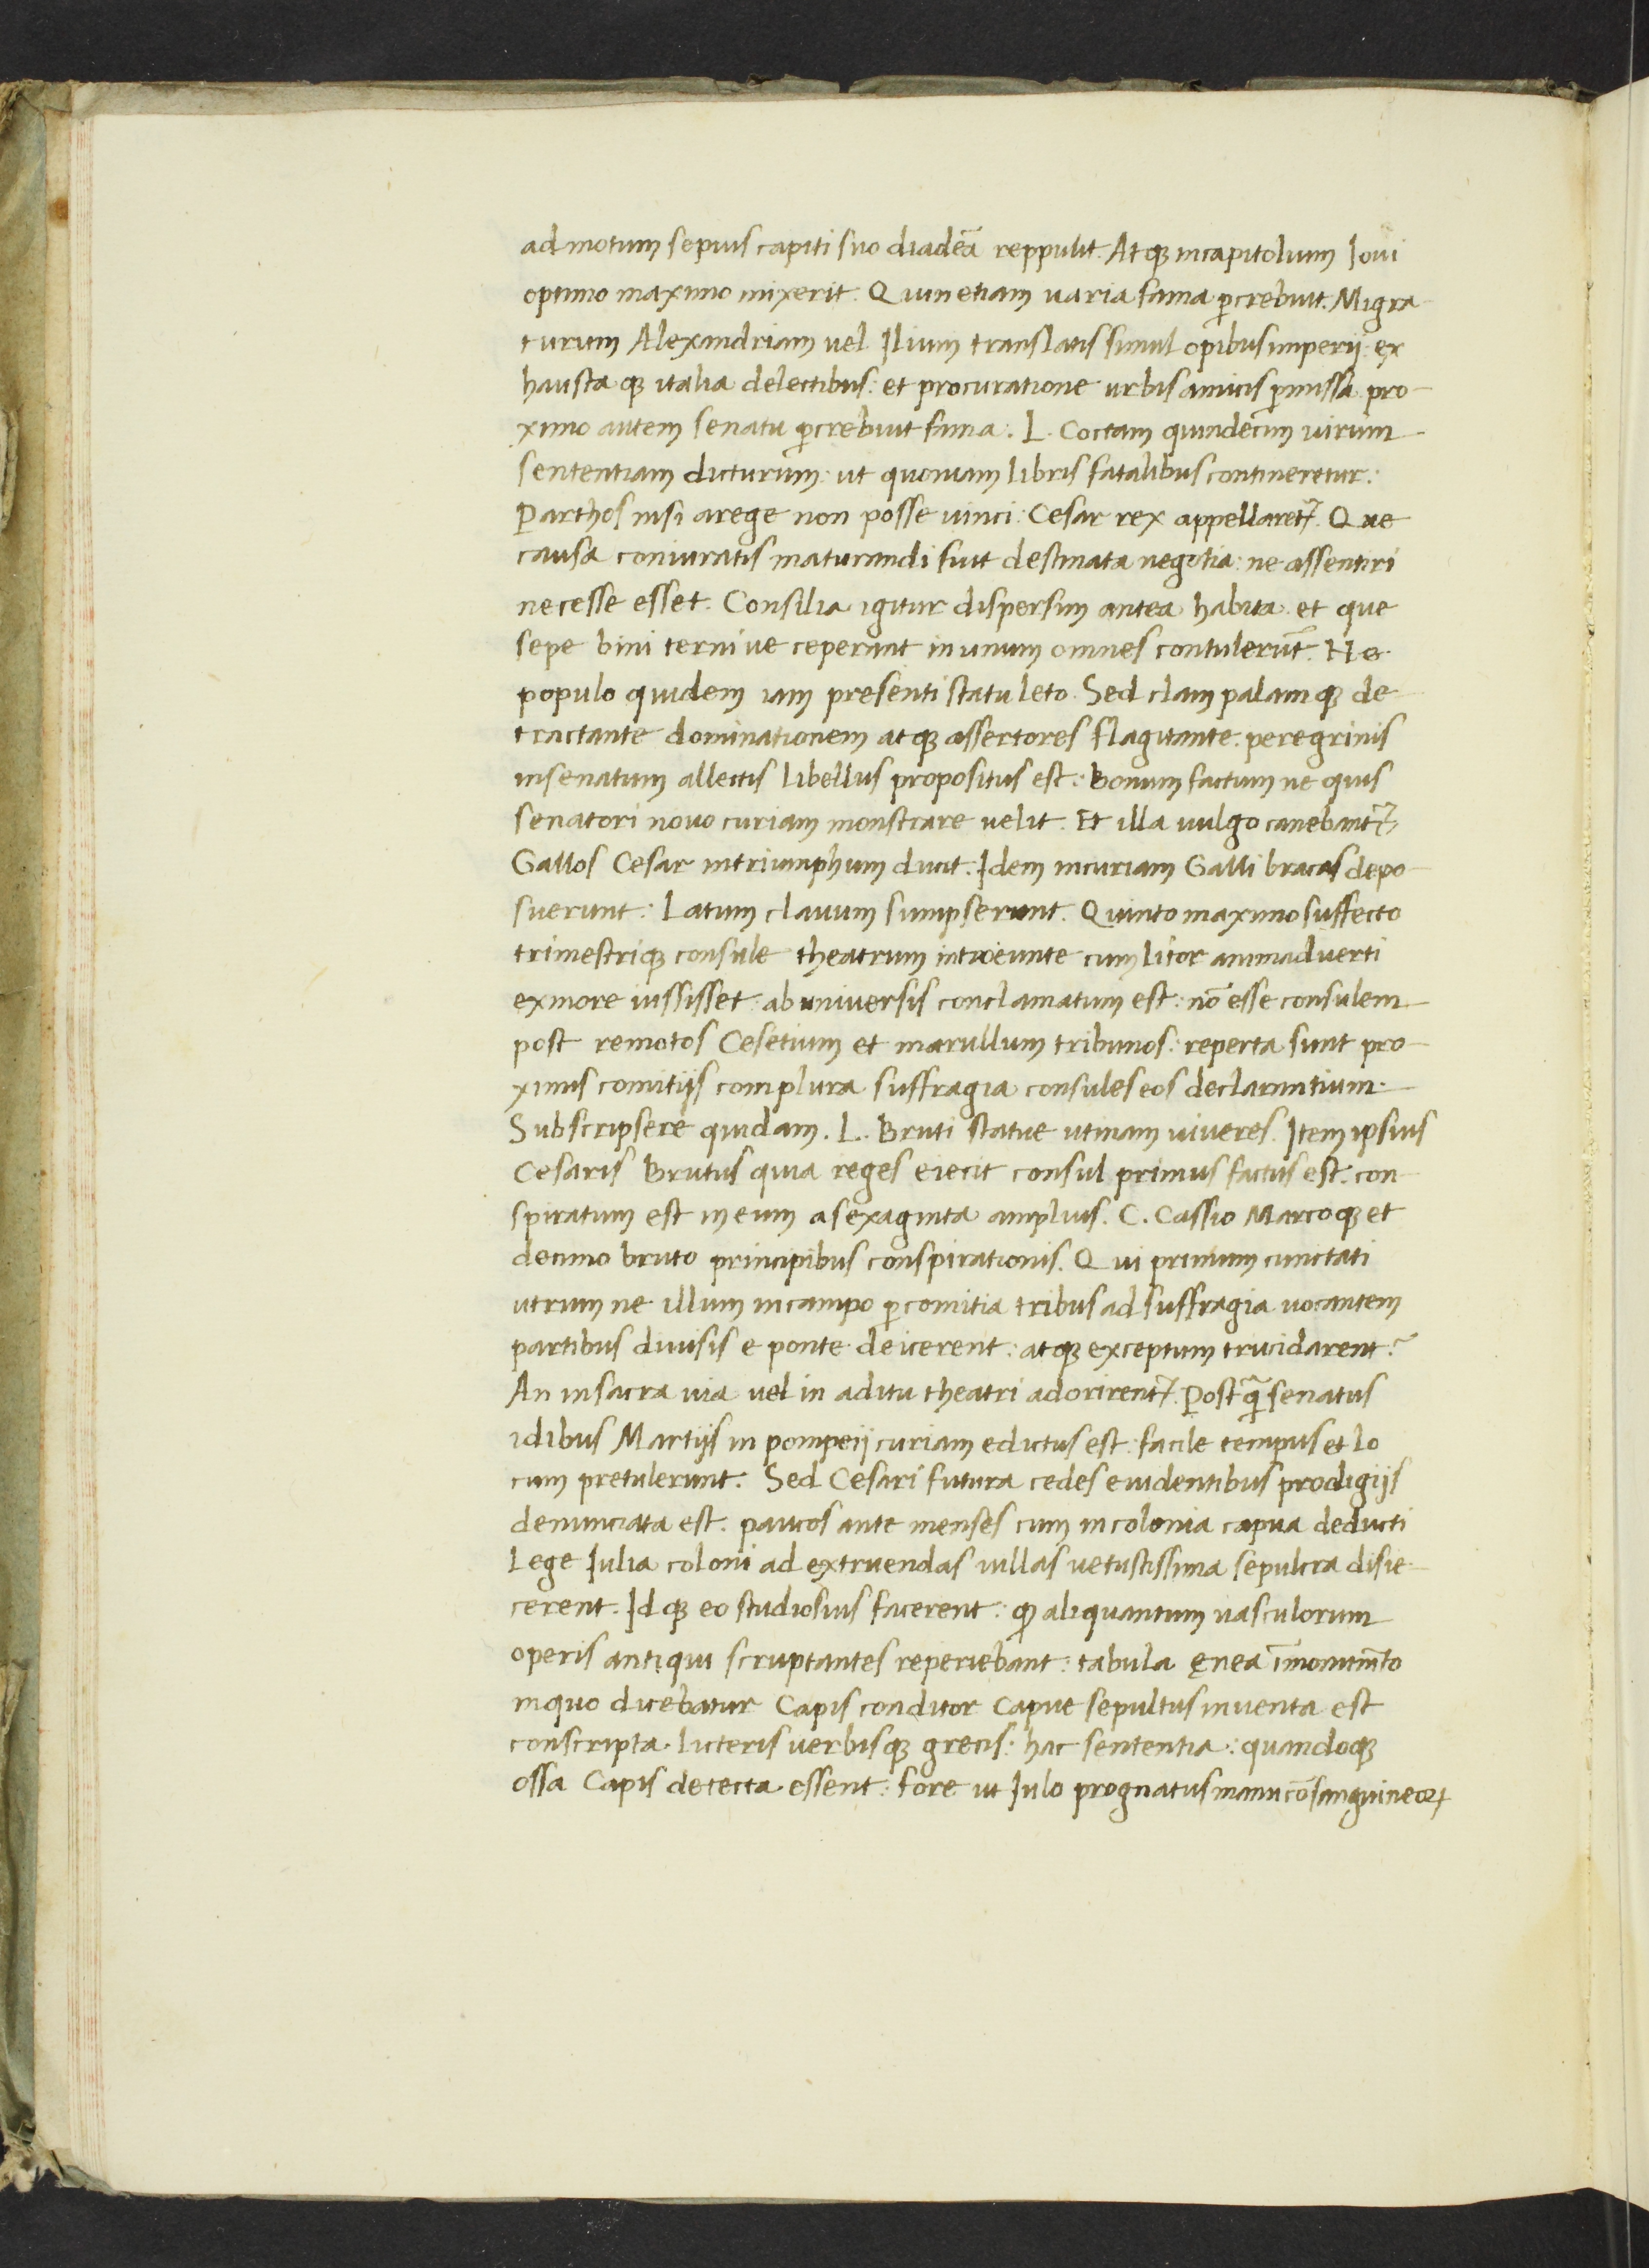 admotum sepius capiti suo diadēa reppulit. Atqꝫ incapitolium Ioui
optimo maximo mixerit. Quin etiam uaria fama ꝑcrebuit. Migra
turum Alexandriam uel Ilium translatis simul opibus imperij: ex
haustaqꝫ italia delectibus: et procuratione urbis amicis ꝑmissa. pro-
ximo autem senatu ꝑcrebuit fama. L. Coctam quindecim uirum
sententiam dicturum: ut quoniam libris fatalibus contineretur:
Parthos nisi arege non posse uinci: Cesar rex appellaretᷣ. Que
causa coniuratis maturandi fuit destinata negotia: ne assentiri
necesse esset. Consilia igitur dispersim antea habita et que
sepe bini terniue ceperant in unum omnes contulerūt. Ne
populo quidem iam presenti statu leto. Sed clam palamqꝫ de
tractante dominationem atqꝫ assertores flagitante. peregrinis
insenatum allectis libellus propositus est: Bonum factum ne quis
senatori nouo curiam monstrare uelit. Et illa uulgo canebantᷣ.
Gallos Cesar intriumphum ducit: Idem incuriam Galli bracas depo-
suerunt: Latum clauum sumpserunt. Quinto maximo suffecto
trimestriqꝫ consule theatrum introeunte cum litor animaduerti
exmore iussisset: ab uniuersis conclamatum est: nō esse consulem
post remotos Cesetium et marullum tribunos: reperta sunt pro-
ximis comitijs complura suffragia consules eos declarantium.
Subscripsere quidam. L. Bruti statue utinam uiueres. Item ipsius
Cesaris Brutus quia reges eiecit consul primus factus est: con-
spiratum est in eum asexaginta amplius. C. Cassio Marcoqꝫ et
decimo bruto principibus conspirationis. Qui primum cunctati
utrum ne illum incampo ꝑ comitia tribus ad suffragia uocantem
partibus diuisis e ponte deicerent: atqꝫ exceptum trucidarent?
An insacra uia uel in aditu theatri adorirentᷣ. Postq̄ senatus
idibus Martijs in pompeij curiam edictus est: facile tempus et lo
cum pretulerunt: Sed Cesari futura cedes euidentibus prodigijs
denunciata est. paucos ante menses cum incolonia capua deducti
Lege Iulia coloni ad extruendas uillas uetustissima sepulcra disie-
cerent. Idqꝫ eo studiosius facerent: qꝫ aliquantum uasculorum
operis antiqui scruptantes reperiebant: tabula ęnea ī monumēto
inquo dicebatur Capis conditor Capue sepultus inuenta est
conscripta. licteris uerbisqꝫ grecis: hac sententia: quandoqꝫ
ossa Capis detecta essent: fore ut Iulo prognatus manu cōsanguineoꝝ